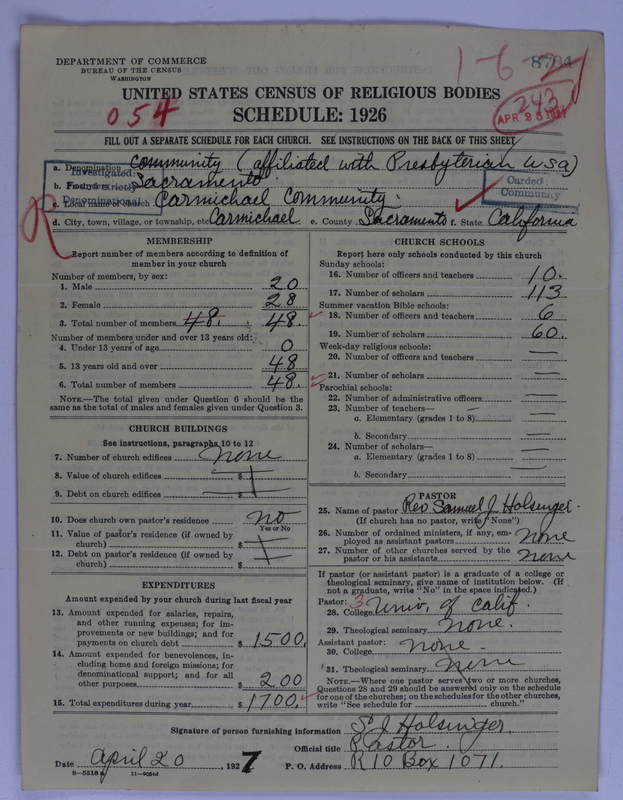 DEPARTMENT OF COMMERCE
BUREAU OF THE CENSUS
WASHINGTON
8784
1-6-21
UNITED STATES CENSUS OF RELIGIOUS BODIES
054
SCHEDULE: 1926
243
APR 28 1927
FILL OUT A SEPARATE SCHEDULE FOR EACH CHURCH. SEE INSTRUCTIONS ON THE BACK OF THIS SHEET
a. Denomination Community (affiliated with Presbyterian USA)
Investigated:
Strictly
Denominational
Carded:
Community
b. Sacramento
c. Local name of church Carmichael Community.
R
d. City, town, village, or township, etc. Carmichael e. County Sacramento f. State California
MEMBERSHIP
Report number of members according to definition of
member in your church
Number of members, by sex:
1. Male 20
2. Female 28
3. Total number of members 48. 48.
Number of members under and over 13 years old:
4. Under 13 years of age 0
5. 13 years old and over 48
6. Total number of members 48.
NOTE.—The total given under Question 6 should be the
same as the total of males and females given under Question 3.
CHURCH BUILDINGS
See instructions, paragraphs 10 to 12
7. Number of church edifices none
8. Value of church edifices $
9. Debt on church edifices $
10. Does church own pastor's residence no
Yes or No
11. Value of pastor's residence (if owned by
church) $
12. Debt on pastor's residence (if owned by
church) $
EXPENDITURES
Amount expended by your church during last fiscal year
13. Amount expended for salaries, repairs,
and other running expenses; for im-
provements or new buildings; and for
payments on church debt $ 1500.
14. Amount expended for benevolences, in-
cluding home and foreign missions; for
denominational support; and for all
other purposes $ 200
15. Total expenditures during year $ 1700.
CHURCH SCHOOLS
Report here only schools conducted by this church
Sunday schools:
16. Number of officers and teachers 10.
17. Number of scholars 113
Summer vacation Bible schools:
18. Number of officers and teachers 6
19. Number of scholars 60.
Week-day religious schools:
20. Number of officers and teachers —
21. Number of scholars —
Parochial schools:
22. Number of administrative officers —
23. Number of teachers—
a. Elementary (grades 1 to 8) —
b. Secondary —
24. Number of scholars—
a. Elementary (grades 1 to 8) —
b. Secondary —
PASTOR
25. Name of pastor Rev Samuel J. Holsinger.
(If church has no pastor, write "None")
26. Number of ordained ministers, if any, em-
ployed as assistant pastors none
27. Number of other churches served by the
pastor or his assistants none
If pastor (or assistant pastor) is a graduate of a college or
theological seminary, give name of institution below. (If
not a graduate, write "No" in the space indicated.)
Pastor: 3
28. College Univ. of Calif.
29. Theological seminary none.
Assistant pastor:
30. College none.
31. Theological seminary none
NOTE.—Where one pastor serves two or more churches,
Questions 28 and 29 should be answered only on the schedule
for one of the churches; on the schedules for the other churches,
write "See schedule for church."
Signature of person furnishing information S. J. Holsinger.
Official title Pastor.
Date April 20, 1927
P. O. Address R 10 Box 1071.
8—5318a 11—9054d